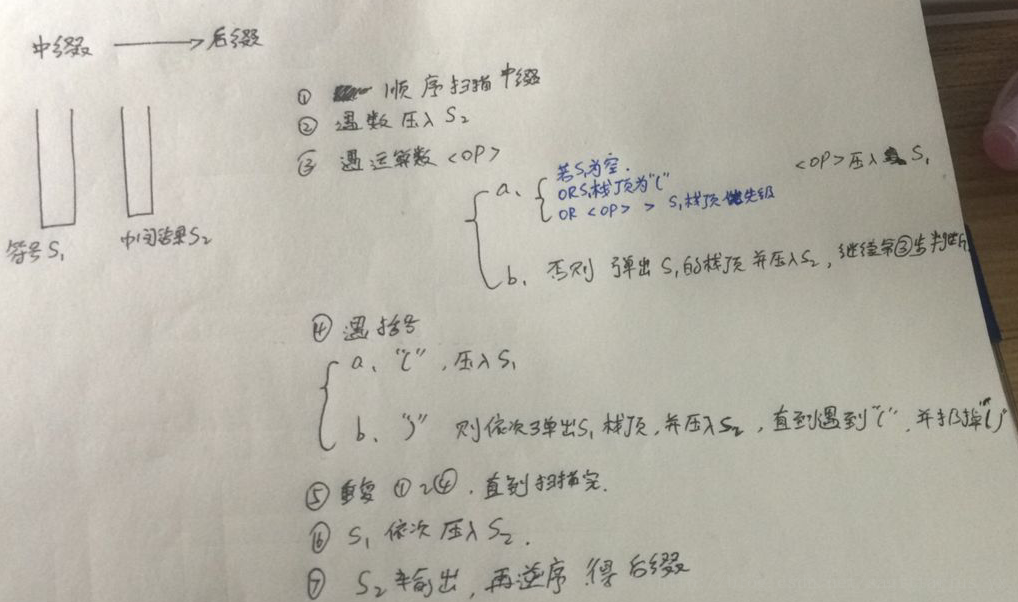 中缀 → 后缀
① 顺序扫描中缀
② 遇数压入S2
③ 遇运算数<OP>
a、 若S1为空.
OR S1栈顶为"("
OR <OP> > S1栈顶优先级
<OP>压入S1
b、否则 弹出S1的栈顶并压入S2,继续第③步判断
符号S1
中间结果S2
④ 遇括号
a、"(",压入S1
b、")" 则依次弹出S1栈顶,并压入S2,直到遇到"(",并扔掉"("
⑤ 重复①~④,直到扫描完.
⑥ S1依次压入S2.
⑦ S2输出,再逆序得后缀